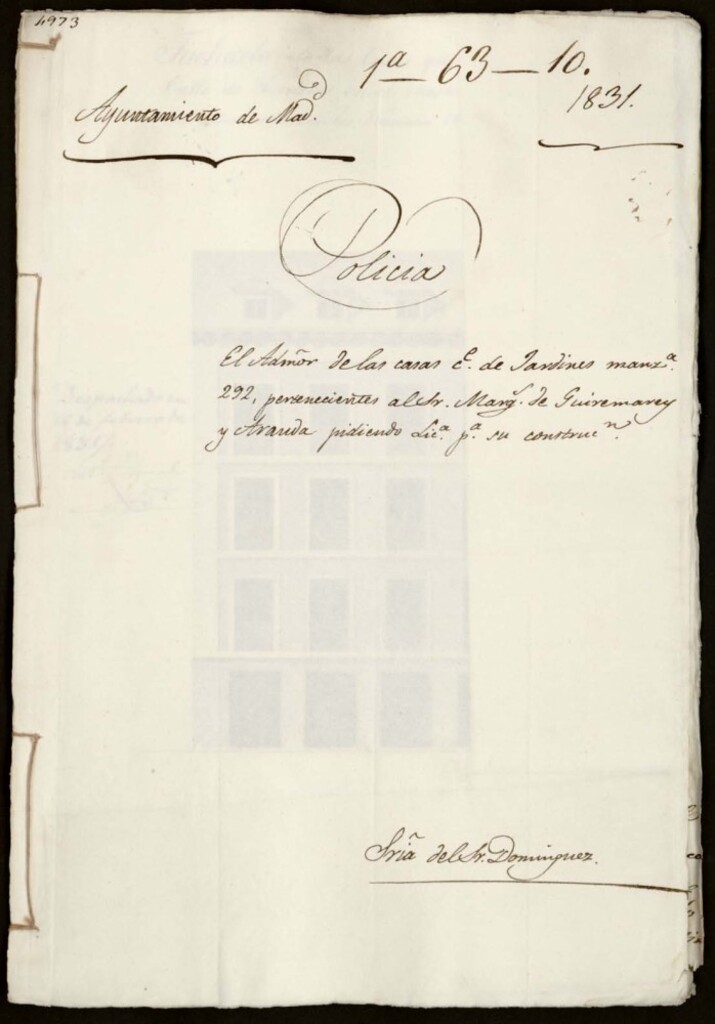 4973
1ª — 63 — 10.
Ayuntamiento de Madᵈ.
1831.
Policia
El Admõr de las casas c.ͤ de Jardines manz.ª
292, pertenecientes al Sr. Marq.ˢ de Guiremarey
y Aranda pidiendo Lic.ª p.ª su construc.ⁿ
Sriã del Sr. Dominguez.